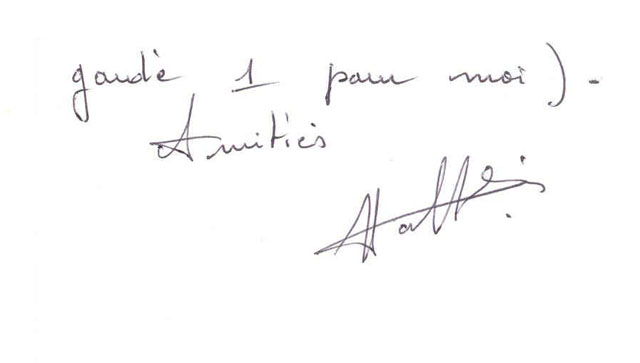 gardé 1 pour moi).
Amitiés